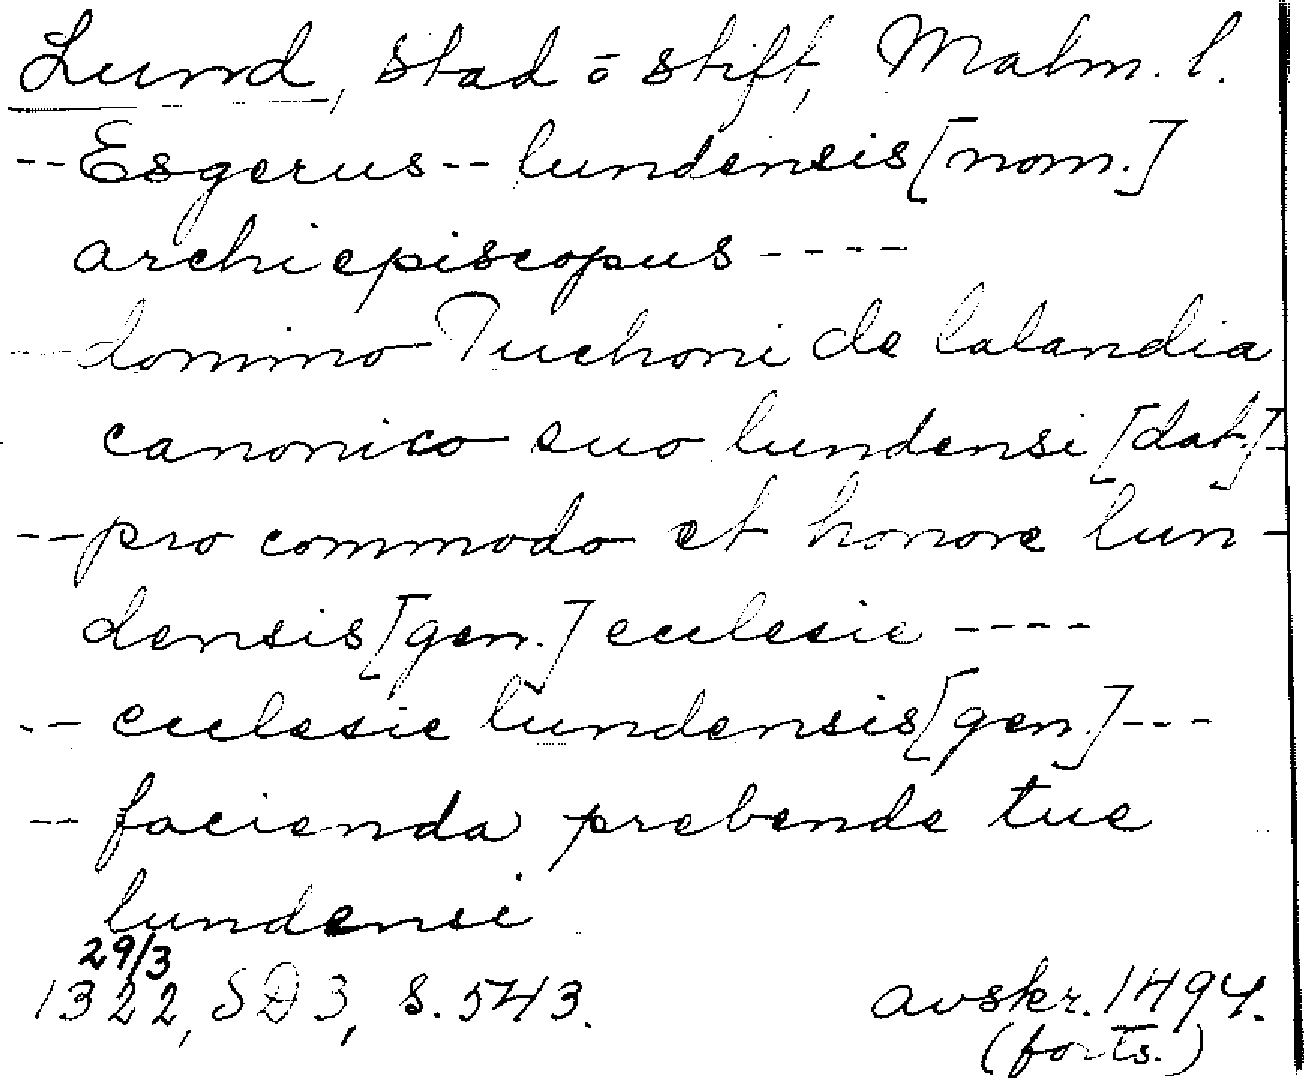 Lund, stad o stift, Malm. l.
-- Esgerus -- lundensis [nom.]
archiepiscopus ----
-- domino Tuchoni de lalandia
canonico suo lundensi [dat.] -
-- pro commodo et honore lun-
densis [gen.] ecclesie ----
-- ecclesie lundensis [gen.] ---
-- facienda prebende tue
lundensi
29/3
1322, SD 3, s. 543. avskr. 1494.
(forts.)